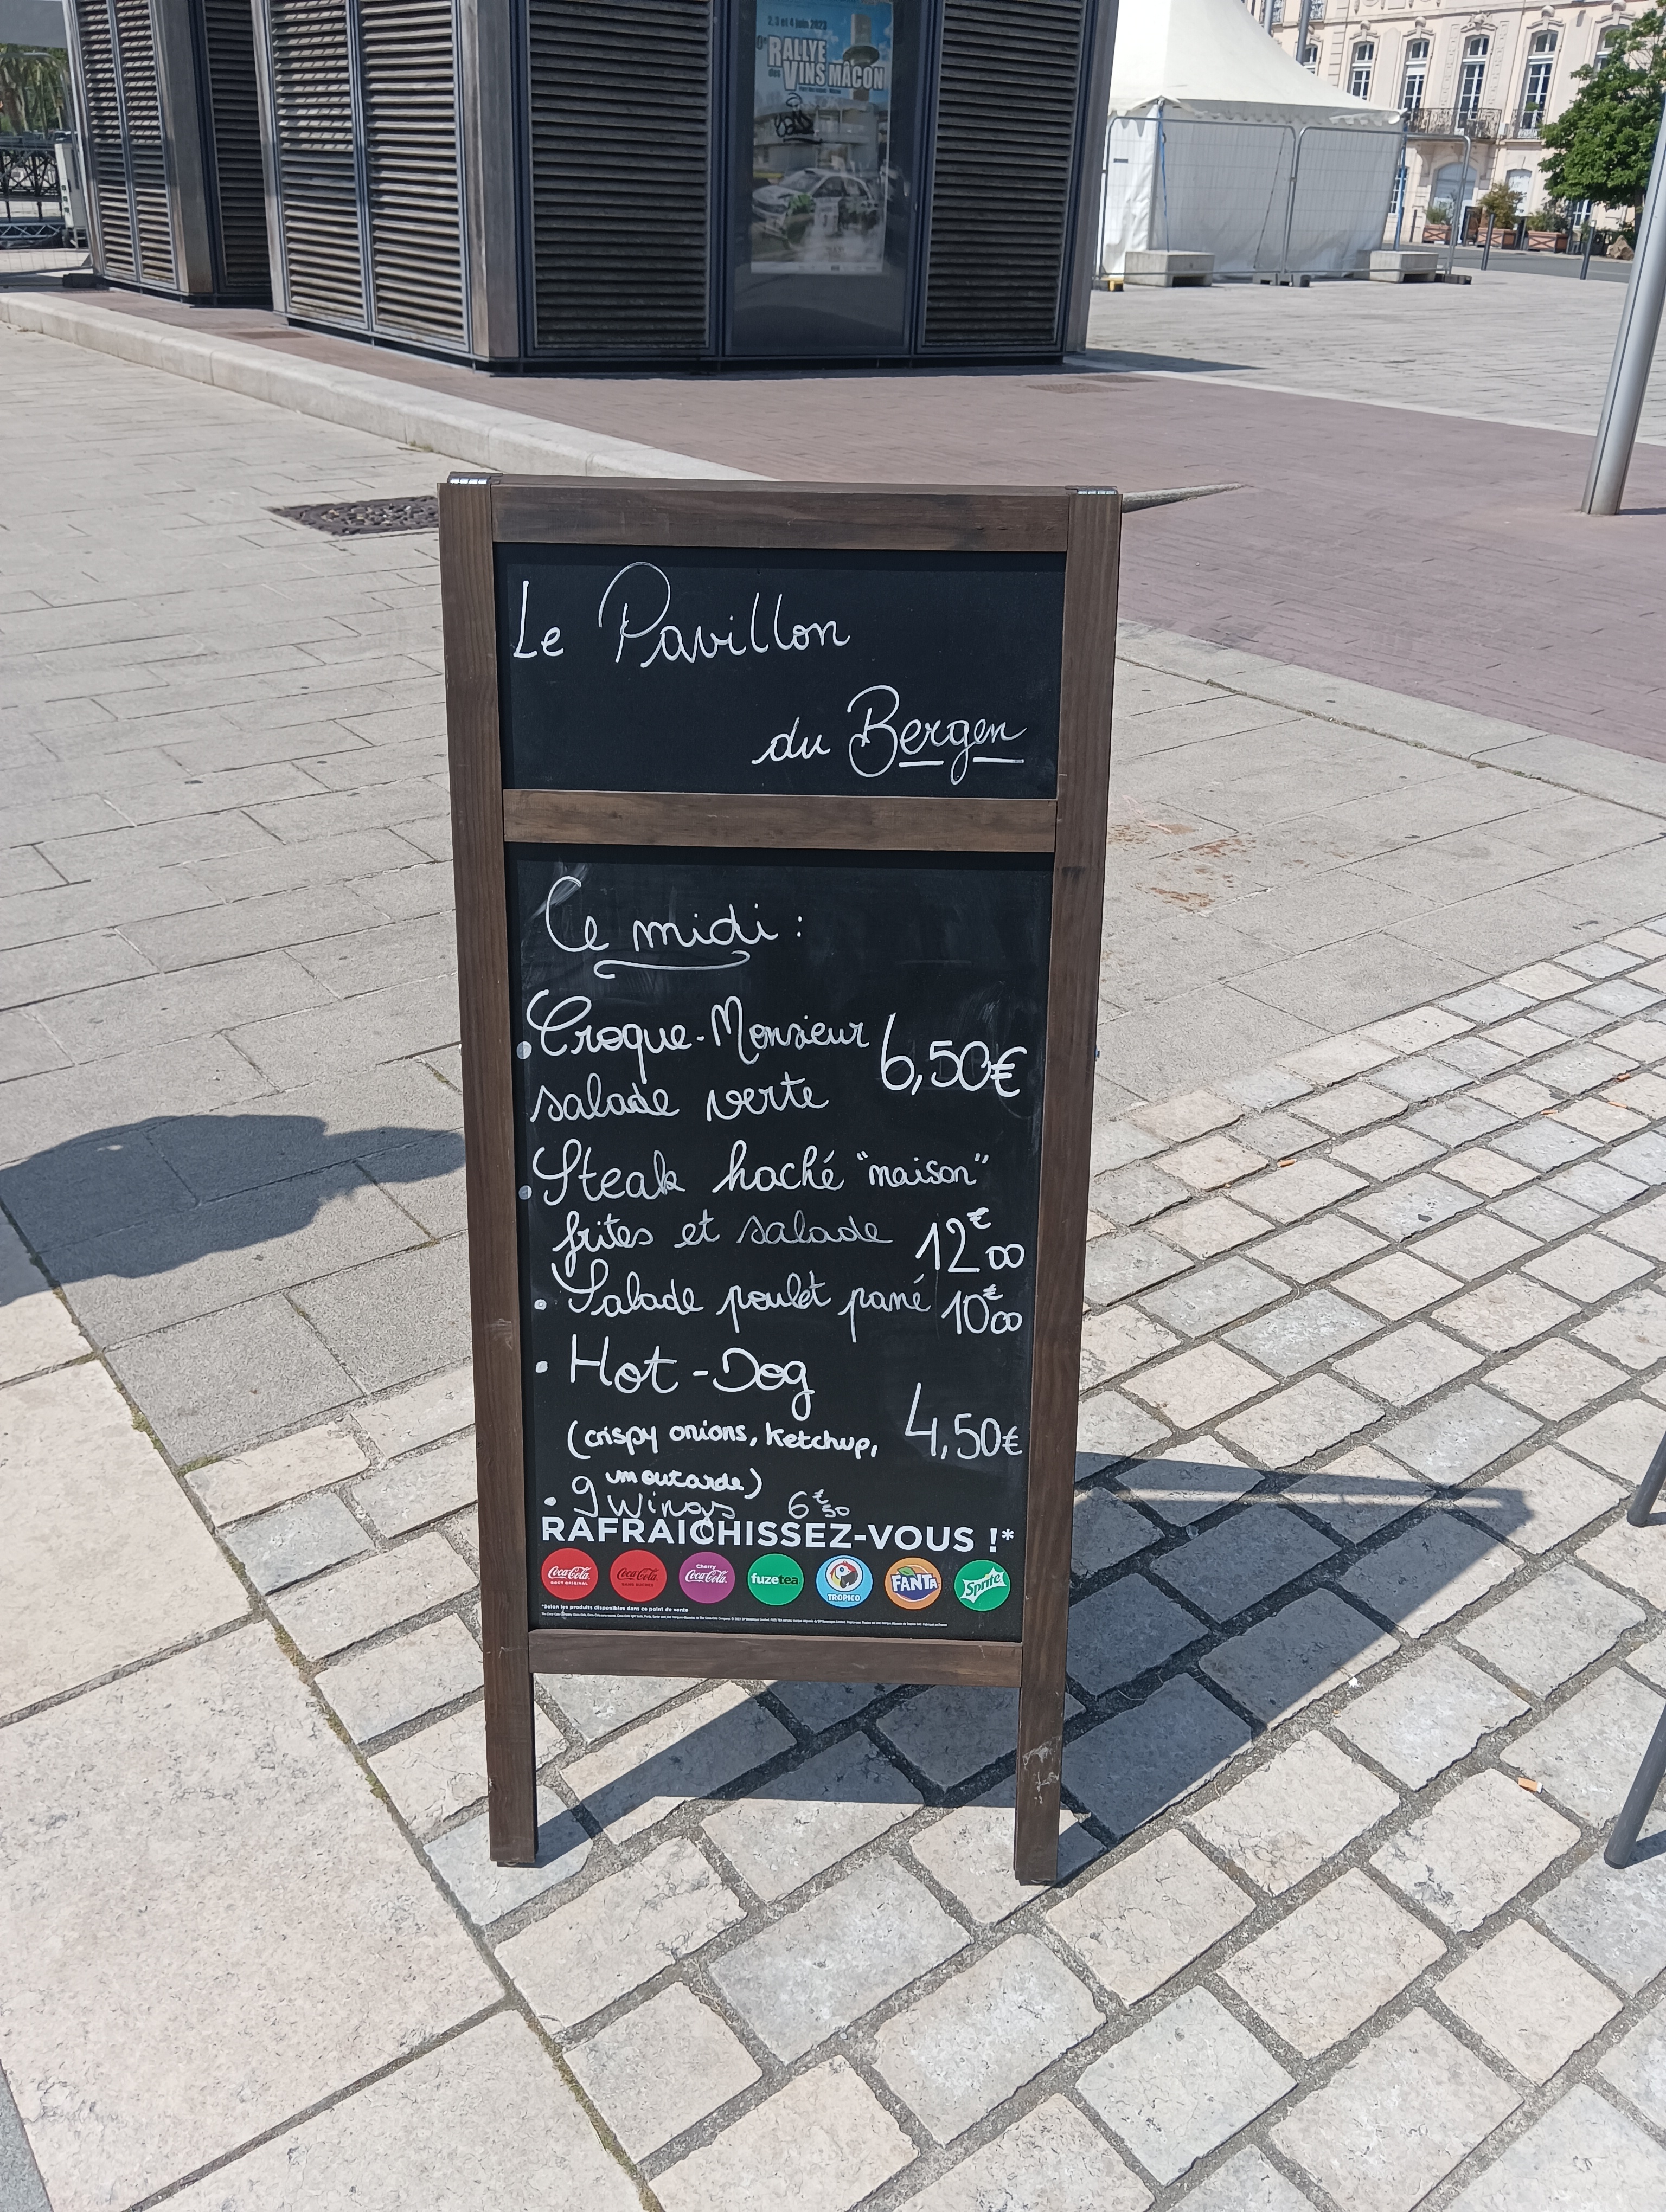 2, 3 et 4 juin 2023
RALLYE
des VINS MÂCON
Le Pavillon
du Bergen
Ce midi :
• Croque-Monsieur 6,50€
salade verte
• Steak haché "maison"
frites et salade 12€00
• Salade poulet pané 10€00
• Hot-Dog
(crispy onions, ketchup, 4,50€
moutarde)
• 9 wings 6€50
RAFRAICHISSEZ-VOUS !*
Coca-Cola GOÛT ORIGINAL Coca-Cola SANS SUCRES Cherry Coca-Cola fuzetea TROPICO FANTA Sprite
*Selon les produits disponibles dans ce point de vente